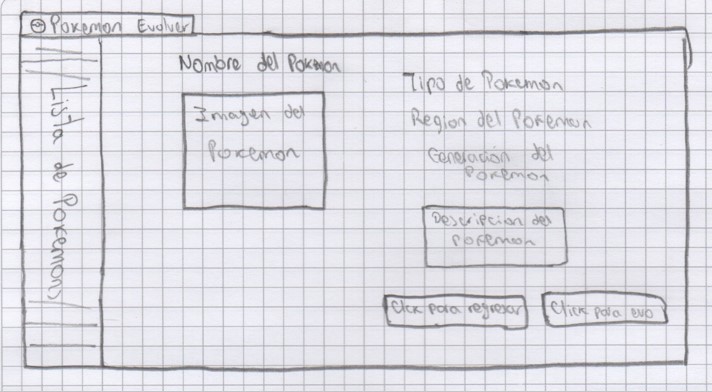 Pokemon Evolver
Lista de Pokemons
Nombre del Pokemon
Imagen del
Pokemon
Tipo de Pokemon
Region del Pokemon
Generación del
Pokemon
Descripcion del
pokemon
Click para regresar
Click para evo